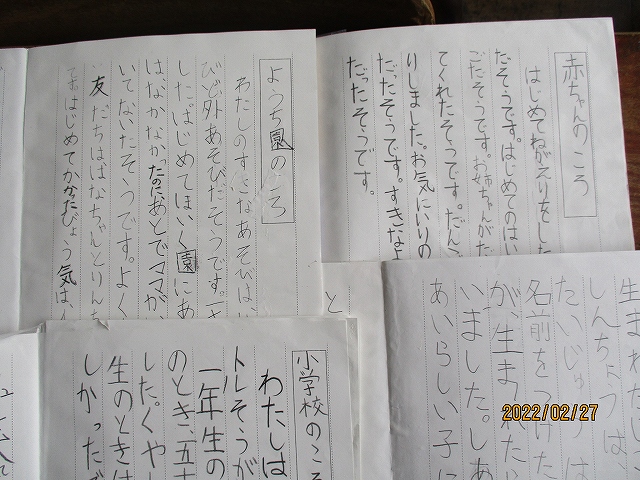 赤ちゃんのころ
はじめてねがえりをした
だそうです。はじめてのはい
ごだそうです。お姉ちゃんがた
てくれたそうです。だんご
りしました。お気にいりの
だったそうです。すきなよ
だったそうです。
ようち園のころ
わたしのすきなあそびは、
びど外あそびだそうです。一さ
した。はじめてほいく園にあ
はなかなかったのにあとでママが、
いてないたそうです。よく
友だちははなちゃんとりんち
です。はじめてかかったびょう気は、
生まれた
しんちょうは、
たいじゅうは
名前をつけた
が、生まれたら
いました。しあ
あいらしい子に
と
小学校のころ
わたしは
トルそうが
一年生の
のとき、五十
した。くやし
生のときは
しかったで
2022/02/27